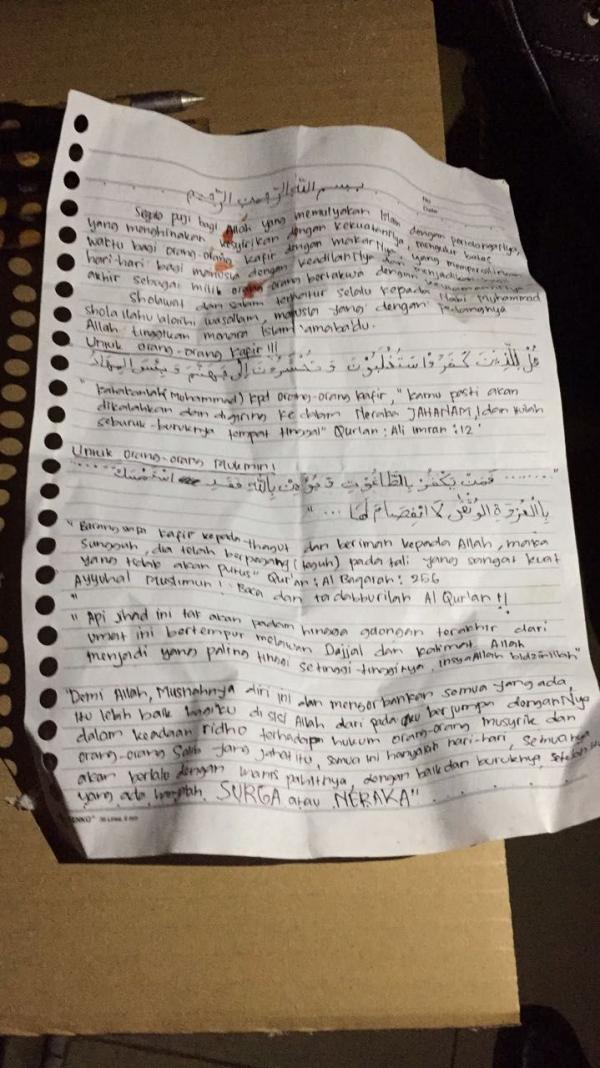 بسم الله الرحمن الرحيم
No
Date
Segala puji bagi Allah yang memulyakan Islam dengan pertolonganNya,
yang menghinakan kesyirikan dengan kekuatanNya, mengulur batas
waktu bagi orang-orang kafir dengan makarNya, yang mempergilirkan
hari-hari bagi manusia dengan keadilanNya dan menjadikan
akhir sebagai milik orang-orang bertakwa dengan
Sholawat dan salam terhatur selalu kepada Nabi Muhammad
sholallahu alaihi wasallam, manusia yang dengan pedangnya
Allah tinggikan menara Islam. amaba'du.
Untuk orang-orang kafir!!!
قُلْ لِلَّذِيْنَ كَفَرُوْا سَتُغْلَبُوْنَ وَتُحْشَرُوْنَ إِلَى جَهَنَّمَ وَبِئْسَ الْمِهَادُ
"Katakanlah (Muhammad) kpd orang-orang kafir, "kamu pasti akan
dikalahkan dan digiring ke dalam Neraka JAHANAM, dan itulah
seburuk-buruknya tempat tinggal" Qur'an : Ali imran : 12
Untuk orang-orang Mukmin!
"....... فَمَنْ يَكْفُرْ بِالطَّاغُوْتِ وَيُؤْمِنْ بِاللهِ فَقَدِ اسْتَمْسَكَ
بِالْعُرْوَةِ الْوُثْقَى لَا انْفِصَامَ لَهَا ... "
"Barangsiapa kafir kepada thagut dan beriman kepada Allah, maka
sungguh, dia telah berpegang (teguh) pada tali yang sangat kuat
yang tidak akan putus" Qur'an : Al Baqarah : 256
Ayyuhal Muslimun! Baca dan tadabburilah Al Qur'an !!
"
"Api jihad ini tak akan padam hingga golongan terakhir dari
umat ini bertempur melawan Dajjal dan kalimat Allah
menjadi yang paling tinggi setinggi-tingginya, insyaAllah bidznillah"
"Demi Allah, Musnahnya diri ini dan mengorbankan semua yang ada,
itu lebih baik bagiku di sisi Allah dari pada aku berjumpa denganNya
dalam keadaan ridho terhadap hukum orang-orang musyrik dan
orang-orang Salib yang jahat itu, semua ini hanyalah hari-hari, semuanya
akan berlalu dengan manis pahitnya, dengan baik dan buruknya, setelah itu
yang ada hanyalah SURGA atau NERAKA"